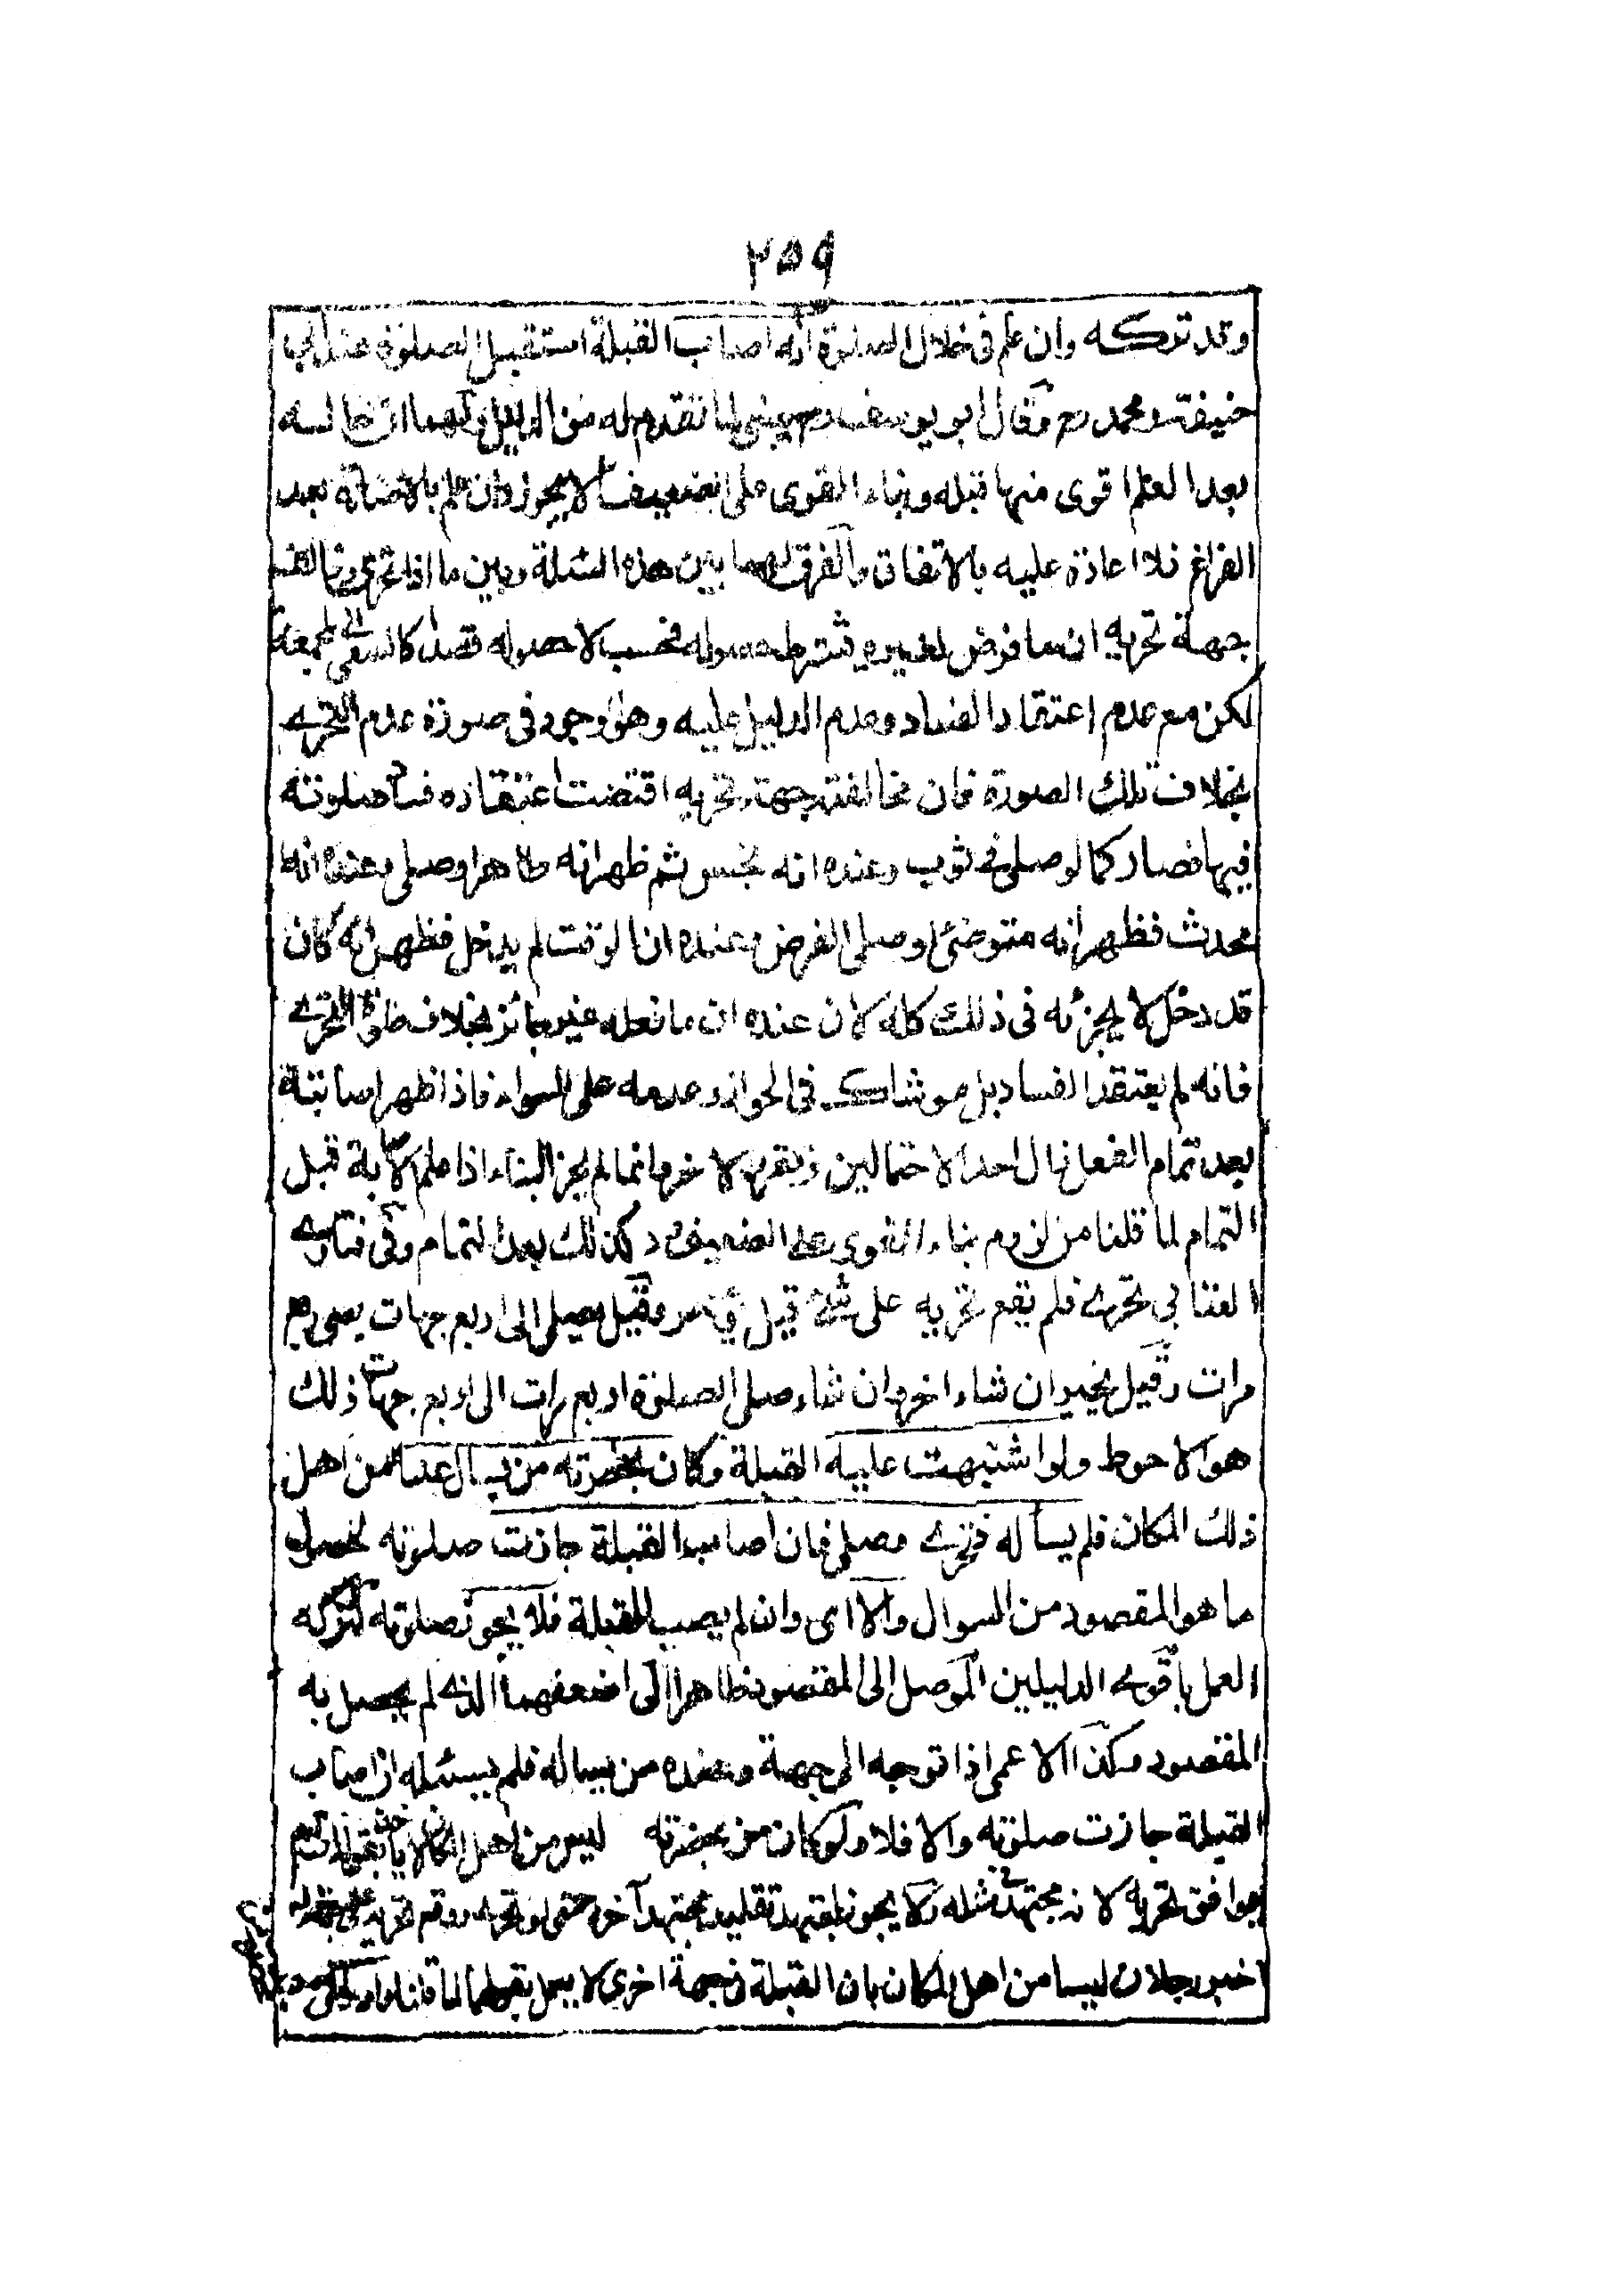 ٢٥٩
وقد تركه وان علم فى خلال الصلوة انه اصاب القبلة استقبل الصلوة عند ابى
حنيفة ومحمد رح وقال ابو يوسف رح يبنى لما تقدم له من الدليل ولهما ان حاله
بعد العلم اقوى منها قبله وبناء القوى على الضعيف لا يجوز وان علم بالاصابة بعد
الفراغ فلا اعادة عليه بالاتفاق والفرق لهما بين هذه المسئلة وبين ما اذا تحرى وخالف
جهة تحريه ان ما فرض لغيره يشترط حصوله فحسب لا حصوله قصدا كالسعى الى الجمعة
لكن مع عدم اعتقاد الفساد وعدم الدليل عليه وهو موجود فى صورة عدم التحرى
بخلاف تلك الصورة فان مخالفة جهة تحريه اقتضت اعتقاده فساد صلوته
فيها فصار كما لو صلى فى ثوب وعنده انه نجس ثم ظهر انه طاهر او صلى وعنده انه
محدث فظهر انه متوضئ او صلى الفرض وعنده ان الوقت لم يدخل فظهر انه كان
قد دخل لا يجزئه فى ذلك كله لان عنده ان ما فعله غير جائز بخلاف صورة التحرى
فانه لم يعتقد الفساد بل هو شاك فى الجواز وعدمه على السواء فاذا ظهر اصابته
بعد تمام الفعل زال احد الاحتمالين وتقرر الاخر وانما لم يجز البناء اذا علم الاصابة قبل
التمام لما قلنا من لزوم بناء القوى على الضعيف ولا كذلك بعد التمام وفى فتاوى
العتابى تحرى فلم يقع تحريه على شئ قيل يؤخر وقيل يصلى الى اربع جهات يعنى اربع
مرات وقيل يخير ان شاء اخر وان شاء صلى الصلوة اربع مرات الى اربع جهات ذلك
هو الاحوط ولو اشتبهت عليه القبلة وكان بحضرته من يسأل عنها من اهل
ذلك المكان فلم يسأله فتحرى وصلى فان اصاب القبلة جازت صلوته لحصول
ما هو المقصود من السوال والا اى وان لم يصب القبلة فلا يجوز صلوته لتركه
العمل باقوى الدليلين الموصل الى المقصود ظاهرا الى اضعفهما الذى لم يحصل به
المقصود وكذا الاعمى اذا توجه الى جهة وعنده من يساله فلم يسئله ان اصاب
القبلة جازت صلوته والا فلا ولو كان من بحضرته ليس من اهل المكان لا ياخذ بقوله ان لم
يوافق تحريه لانه مجتهد مثله ولا يجوز لمجتهد تقليد مجتهد آخر حتى لو تحرى ووقع تحريه على جهة
اخبر رجلان ليسا من اهل المكان بان القبلة فى جهة اخرى لا يعمل بقولهما لما قلنا ولو